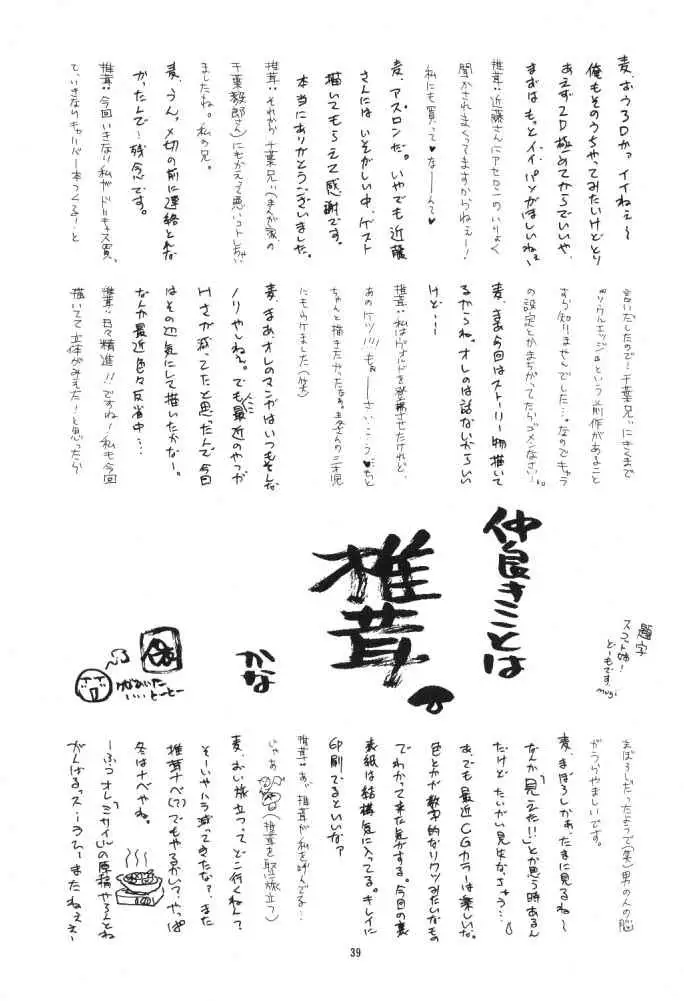 麦、おう3Dかっ イイねぇ〜
俺もそのうちやってみたいけどとり
あえず2D極めてからでいいや、
まずは、もっとイイパソがほしいねぇ
椎茸：近藤さんにアセロンのいりょく
聞かされまくってますからねぇー！
私にも買って♥な――んて♥
麦、アスロンだ。いやでも近藤
さんには いそがしい中、ゲスト
描いてもらえて感謝です。
本当にありがとうございました。
椎茸：それから千葉兄ぃ(まんが家の
千葉毅郎さん)にもかまえて悪いコトしちゃい
ましたね。私の兄。
麦、うん。〆切の前に連絡とれな
かったんで…残念です。
椎茸：今回いきなり私がドリキャス買っ
て、いきなりキャリバー本つくるー！と
言いだしたので…千葉兄ぃにきくまで
『ソウルエッジ』という前作があること
すら知りませんでした…。なのでキャラ
の設定とかまちがってたらゴメンなさい。
麦、まあ今回はストーリー物描いて
るからね。オレのは話ないからいい
けど…
椎茸：私はヴォルドを登場させたけれど、
あのケツ！！もぉ――さいこう♥もっと
ちゃんと描きたかったなぁ。
にもウケました(笑)
麦、まあ、オレのマンガはいつもそんな
ノリやしねぇ。でも最近のやつが
Hさが減ってたと思ったんで今回
はその辺気にして描いたかなー。
なんか最近色々反省中…
椎茸：日々精進！！ですね！私も今回
描いてて立体がみえた！と思ったら
まぼろしだったようで(笑)男の人の脳
がうらやましいです。
麦、まぼろしかあ、たまに見るね〜
なんか「見えた！！」とか思う時あるん
だけど、たいがい見失なっちゃう…
あ、でも最近CGカラーは楽しいな。
色とかが数字的なリクツみたいなもの
でわかって来た気がする。今回の裏
表紙は結構気に入ってる。キレイに
印刷でるといいな？
椎茸：あっ椎茸が私を呼んでる…
じゃあ(椎茸を堅に旅立つ)
麦、おい旅立つってどこ行くねん？
そーいやハラ減ってきたな？、また
椎茸ナベ(？)でもやるかい？やっぱ
冬はナベやね。
―ふっ オレ「ミサイル」の原稿やろっとね
がんばるっス！うひー またねぇぇ〜
仲良きことは
椎茸。
かな
題字
スコット姉！
どーもです。
mugi
39